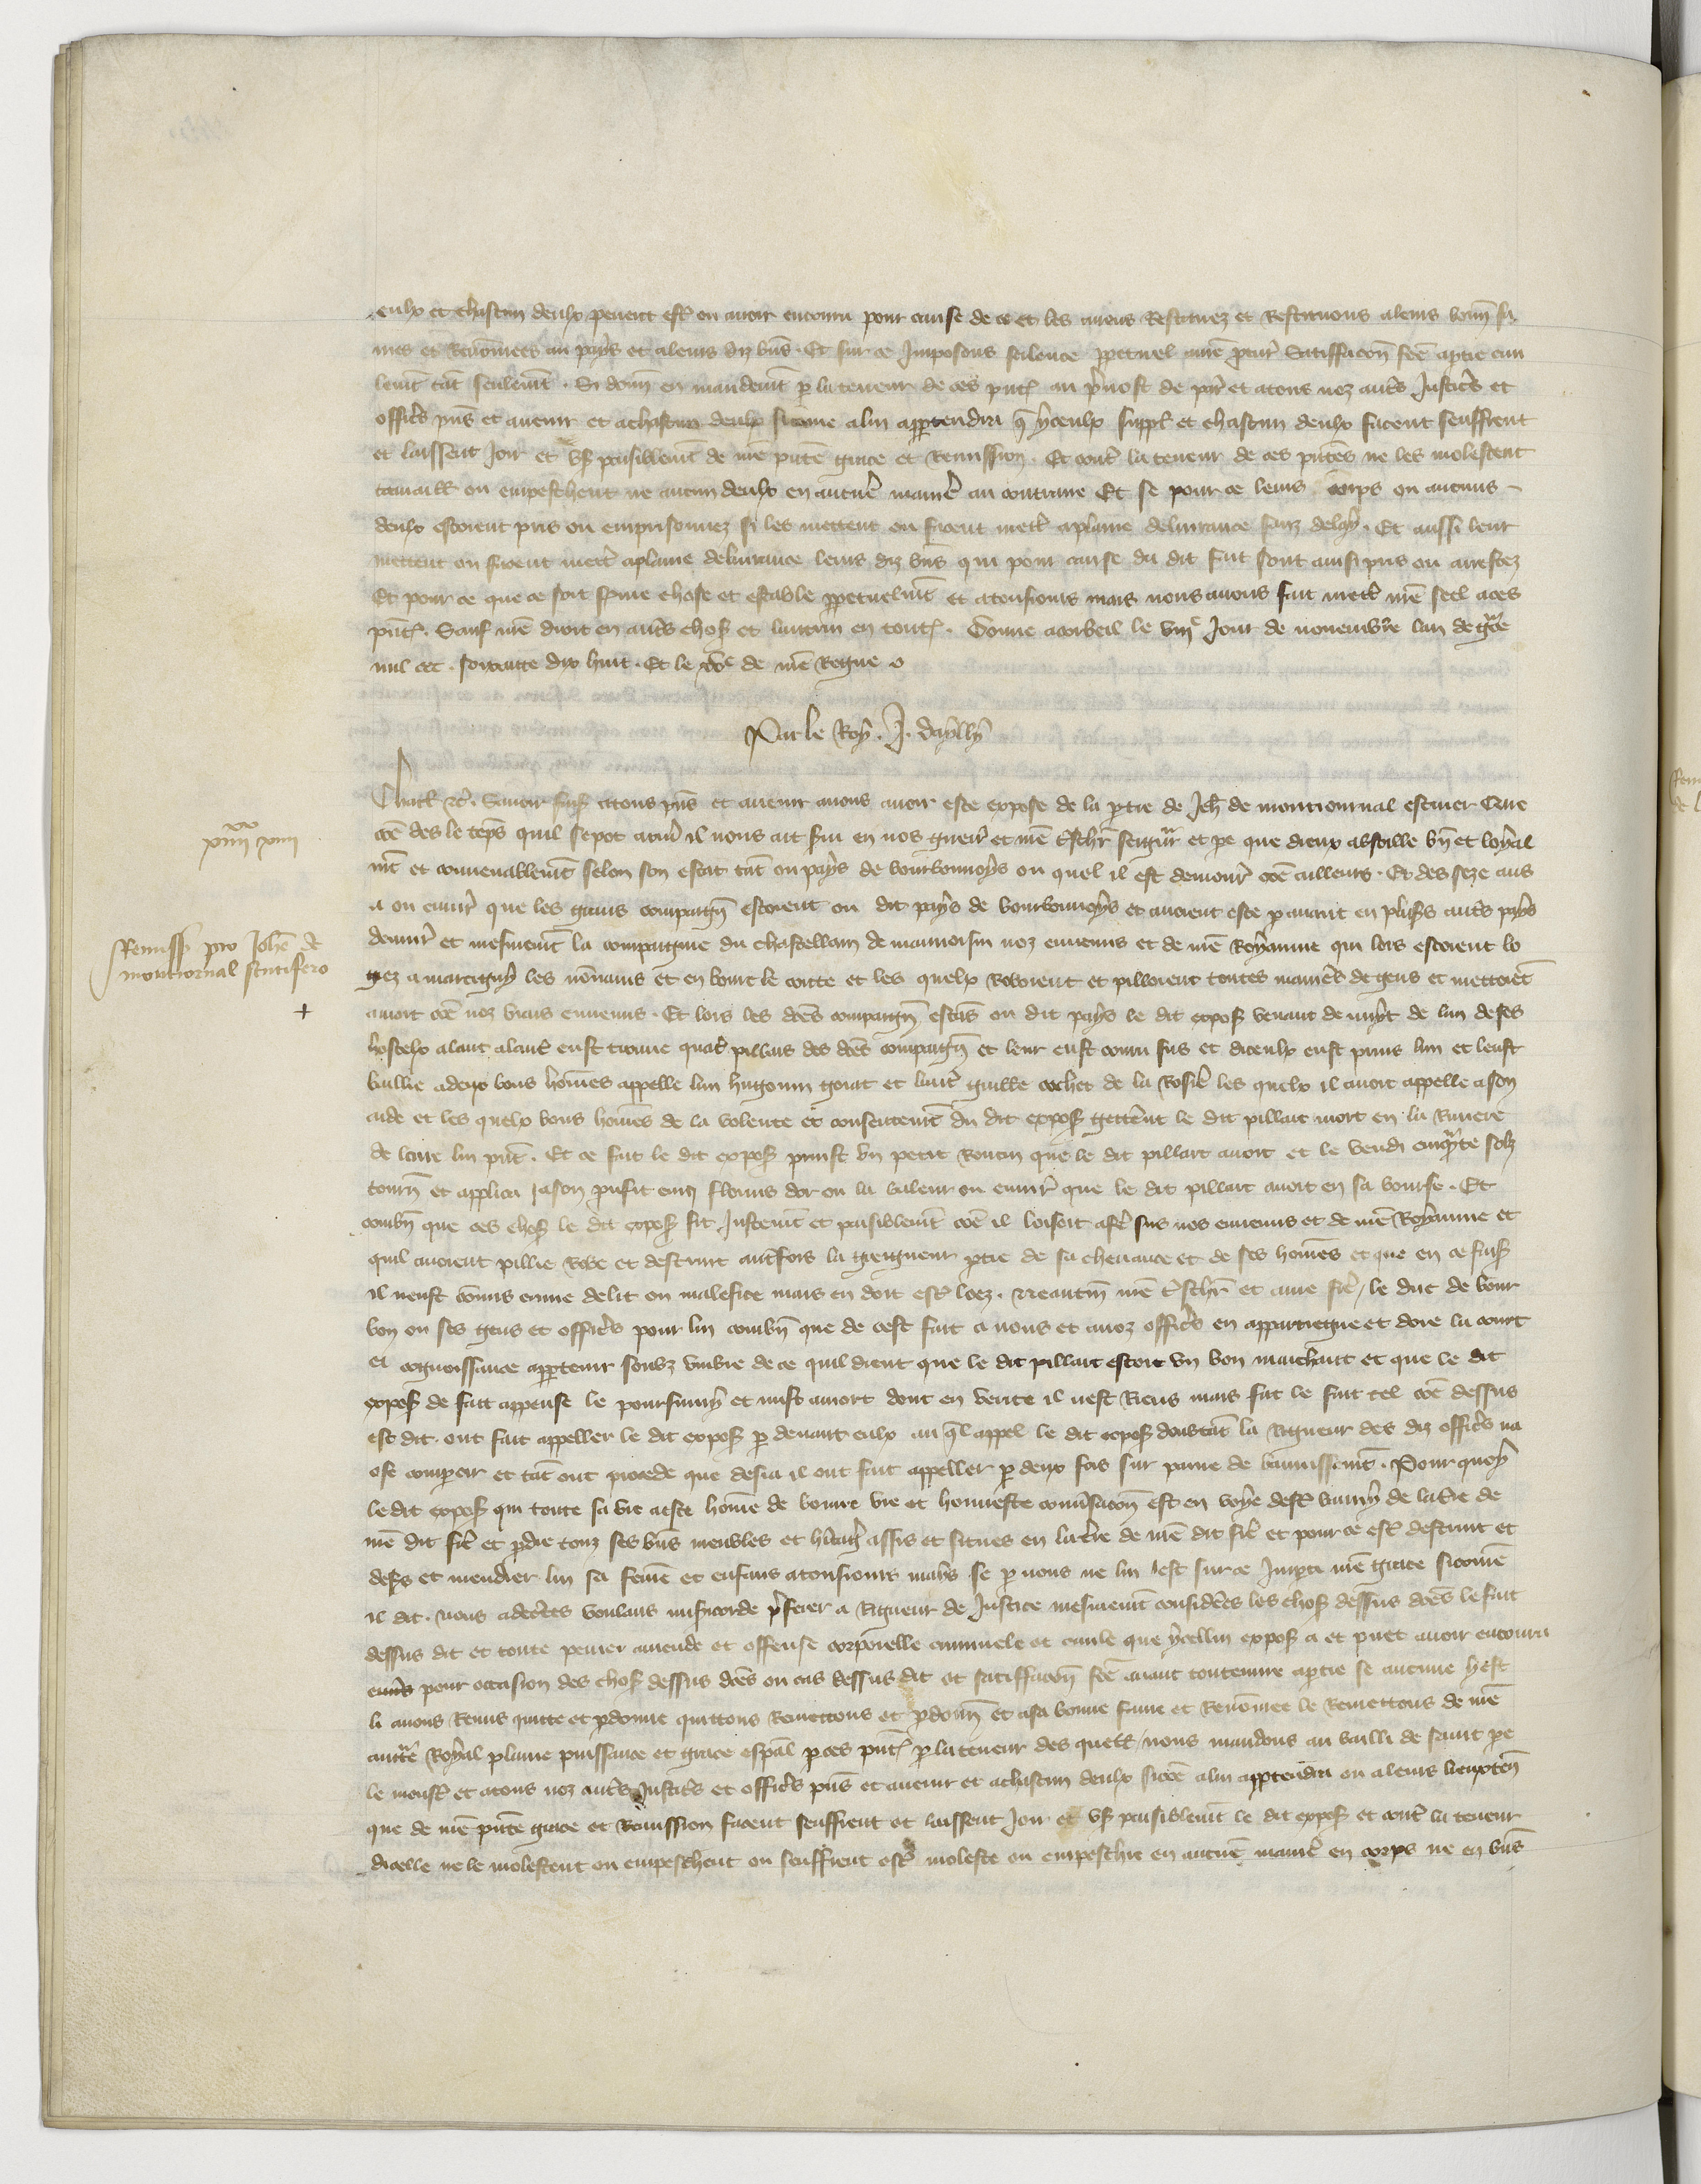 eulx et chascun deulx peuent estre ou avoir encouru pour cause de ce et les avons Restituez et Restituons a leurs bonnes fa
mes et Renommees au pays et a leurs diz biens. Et sur ce Imposons scilence perpetuel a nostre procureur Satiffacion faite a partie civi
lement tant seulement. Si donnons en mandement par la teneur de ces presentes au prevost de paris et a tous noz autres Justiciers et
officiers presens et avenir et a chascun deulx si comme a lui appartendra que yceulx suppl et chascun deulx facent seuffrent
et laissent Joir et user paisiblement de nostre presente grace et Remission. Et contre la teneur de ces presentes ne les molestent
travaillent ou empeschent ne aucun deulx en aucune maniere au contraire Et se pour ce leurs corps ou aucuns
deulx estoient pris ou emprisonnez si les mettent ou facent mettre a plaine delivrance sanz delay. Et aussi leur
mettent ou facent mettre a plaine delivrance leurs diz biens qui pour cause du dit fait sont ainsi pris ou arrestez
Et pour ce que ce soit ferme chose et estable perpetuelment et a tousiours mais nous avons fait mettre nostre seel a ces
presentes. Sauf nostre droit en autres choses et lautrui en toutes. Donne a corbeil le VIIIe Jour de novembre lan de grace
mil ccc. soixante dix huit. Et le XVe de nostre Regne
Par le Roy. J. daylly
Charles etc. Savoir faisons a tous presens et avenir a nous avoir este expose de la partie de Jehan de montiournal escuier Que
comme des le temps quil se pot armer il nous ait servi en nos guerres et nostre treschier seigneur et pere que dieux absoille bien et loyal
ment et convenablement selon son estat tant ou pays de bourbonnoys ou quel il est demourant comme ailleurs. Et des seze ans
a ou environ que les grans compaignes estoient ou dit pays de bourbonnoys et avoient este par avant en plusieurs autres pays
demourer et mesmement la compaignie du chastellain de mannoisin noz ennemis et de nostre Royaume qui lors estoient lo
gez a marcigny les nonnains et en bourc le conte et les quelx Roboient et pilloient toutes manieres de gens et mettoient
a mort comme noz vrais ennemis. Et lors les dictes compaignes estans ou dit pays le dit exposant venant de nuyt de lun de ses
hostelx alant a lautre eust trouve quatre pillars des dictes compaignes et leur eust couru sus et diceulx eust prins lun et leust
baillie a deux bons hommes appelle lun hugonin goiat et lautre guillaume cochet de la Rosiere les quelx il avoit appelle a son
aide et les quelx bons hommes de la volente et consentement du dit exposant getterent le dit pillart mort en la Riviere
de loire lui present. Et ce fait le dit exposant prinst un petit Roncin que le dit pillart avoit et le vendi cinquante solz
tournois et applica a son proufit cinq florins dor ou la valeur ou environ que le dit pillart avoit en sa bourse. Et
combien que ces choses le dit exposant fit Justement et paisiblement comme il loisoit a faire sus nos ennemis et de nostre Royaume et
quil avoient pillie Robe et destruit autresfois la greigneur partie de sa chevance et de ses hommes et que en ce faisant
il neust commis crime delit ou malefice mais en doit estre loez. Neantmoins nostre treschier et ame frere le duc de bour
bon ou ses gens et officiers pour lui combien que de cest fait a nous et a noz officiers en appartiegne et doie la court
et cognoissance appartenir soubz umbre de ce quil dient que le dit pillart estoit un bon marchant et que le dit
exposant de fait appense le poursuivy et mist a mort dont en verite il nest Riens mais fut le fait tel comme dessus
est dit. ont fait appeller le dit exposant par devant eulx au quel appel le dit exposant doubtant la Rigueur des diz officiers na
ose comparoir et tant ont procede que desia il ont fait appeller par deux fois sur paine de bannissement. Pour quoy
le dit exposant qui toute sa vie a este homme de bonne vie et honneste conversacion est en voye destre banny de la terre de
nostre dit frere et perdre touz ses biens meubles et heritages assis et situes en la terre de nostre dit frere et pour ce estre destruit et
desers et mendier lui sa femme et enfans a tousiours mais se par nous ne lui est sur ce Imparti nostre grace si comme
il dit. Nous adecertes voulans misericorde preferer a Rigueur de Justice mesmement considerees les choses dessus dictes le fait
dessus dit et toute peine amende et offense corporelle criminele et civile que ycellui exposant a et puet avoir encouru
envers pour occasion des choses dessus dictes ou cas dessus dit et satiffacion faite avant toute euvre a partie se aucune y est
li avons Remis quitte et pardonne quittons Remettons et pardonnons et a sa bonne fame et Renommee le Remettons de nostre
auctorite Royal plaine puissance et grace especial par ces presentes par la teneur des quelles nous mandons au bailli de saint pere
le moustier et a tous noz autres Justiciers et officiers presens et avenir et a chascun deulx si comme a lui appartendra ou a leurs lieuxtenans
que de nostre presente grace et Remission facent seuffrent et laissent Joir et user paisiblement le dit exposant et contre la teneur
dicelle ne le molestent ou empeschent ou seuffrent estre moleste ou empeschie en aucune maniere en corps ne en biens
Remissio pro Johanne de
montiornal scutifero
+